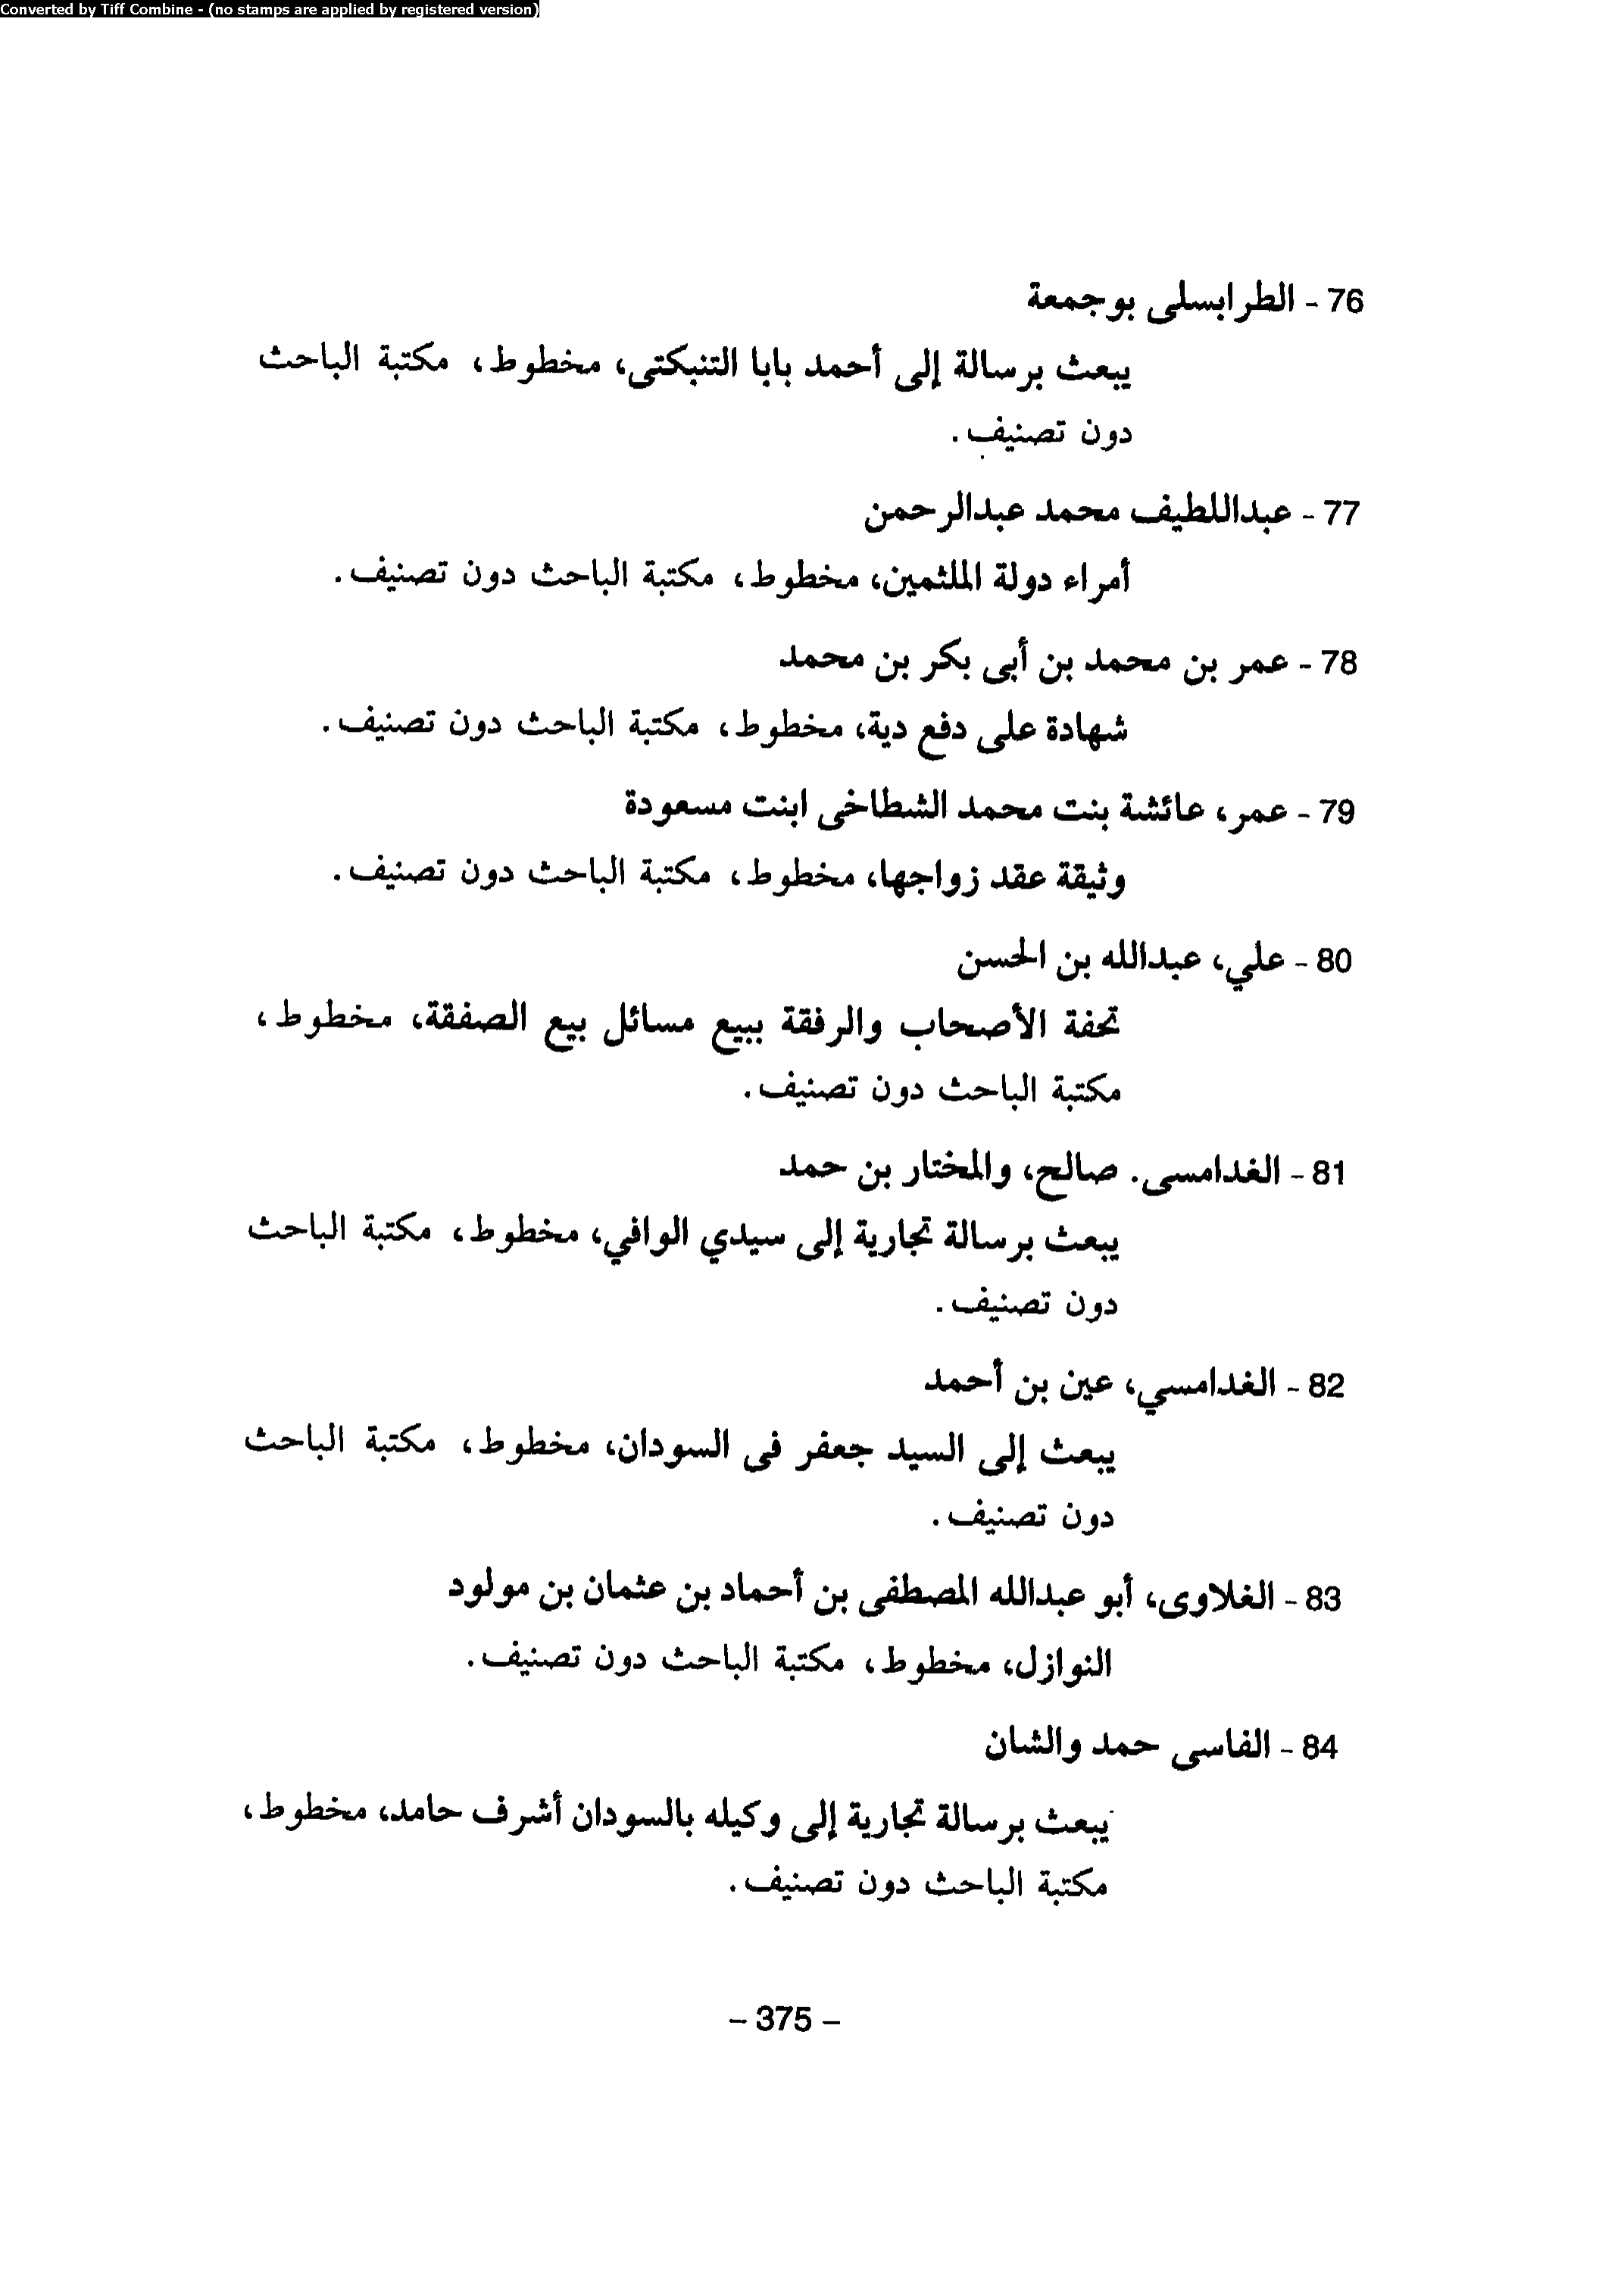 Converted by Tiff Combine - (no stamps are applied by registered version)
76 - الطرابسلى بوجمعة
يبعث برسالة إلى أحمد بابا التنبكتى، مخطوط، مكتبة الباحث
دون تصنيف.
77 - عبداللطيف محمد عبدالرحمن
أمراء دولة الملثمين، مخطوط، مكتبة الباحث دون تصنيف.
78 - عمر بن محمد بن أبى بكر بن محمد
شهادة على دفع دية، مخطوط، مكتبة الباحث دون تصنيف.
79 - عمر، عائشة بنت محمد الشطاخى ابنت مسعودة
وثيقة عقد زواجها، مخطوط، مكتبة الباحث دون تصنيف.
80 - علي، عبدالله بن الحسن
تحفة الأصحاب والرفقة ببيع مسائل بيع الصفقة، مخطوط،
مكتبة الباحث دون تصنيف.
81 - الغدامسى. صالح، والمختار بن حمد
يبعث برسالة تجارية إلى سيدي الوافي، مخطوط، مكتبة الباحث
دون تصنيف.
82 - الغدامسي، عين بن أحمد
يبعث إلى السيد جعفر فى السودان، مخطوط، مكتبة الباحث
دون تصنيف.
83 - الغلاوى، أبو عبدالله المصطفى بن أحماد بن عثمان بن مولود
النوازل، مخطوط، مكتبة الباحث دون تصنيف.
84 - الفاسى حمد والشان
يبعث برسالة تجارية إلى وكيله بالسودان أشرف حامد، مخطوط،
مكتبة الباحث دون تصنيف.
– 375 –